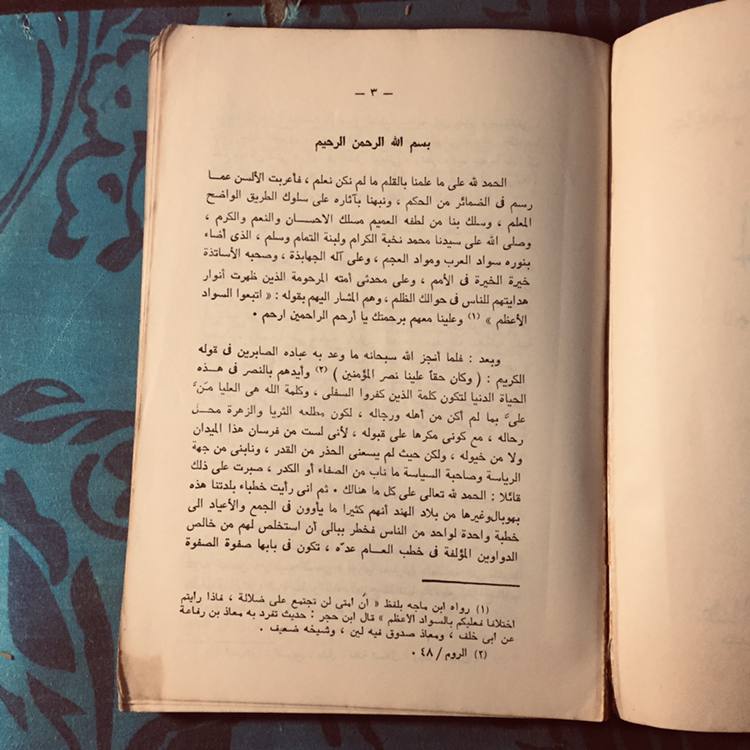 – ٣ –
بسم الله الرحمن الرحيم
الحمد لله على ما علمنا بالقلم ما لم نكن نعلم ، فأعربت الألسن عمـا
رسم فى الضمائر من الحكم ، ونبهنا بآثاره على سلوك الطريق الواضح
المعلم ، وسلك بنا من لطفه العميم مسلك الاحســان والنعم والكرم ،
وصلى الله على سيدنا محمد نخبة الكرام ولبنة التمام وسلم ، الذى أضاء
بنوره سواد العرب ومواد العجم ، وعلى آله الجهابذة ، وصحبه الأساتذة
خيرة الخيرة فى الأمم ، وعلى محدثى أمته المرحومة الذين ظهرت أنوار
هدايتهم للناس فى حوالك الظلم ، وهم المشار اليهم بقوله : « اتبعوا السواد
الأعظم » (١) وعلينا معهم برحمتك يا أرحم الراحمين ارحم .
وبعد : فلما أنجز الله سبحانه ما وعد به عباده الصابرين فى قوله
الكريم : ( وكان حقاً علينا نصر المؤمنين ) (٢) وأيدهم بالنصر فى هــذه
الحياة الدنيا لتكون كلمة الذين كفروا السفلى ، وكلمة الله هى العليا مَنَّ
علىَّ بما لم أكن من أهله ورجاله ، لكون مطلعه الثريا والزهرة محــل
رحاله ، مع كونى مكرها على قبوله ، لأنى لست من فرسان هذا الميدان
ولا من خيوله ، ولكن حيث لم يسعنى الحذر من القدر ، ونابنى من جهة
الرياسة وصاحبة السياسة ما ناب من الصفاء أو الكدر ، صبرت على ذلك
قائلا : الحمد لله تعالى على كل ما هنالك . ثم انى رأيت خطباء بلدتنا هذه
بهوبال وغيرها من بلاد الهند أنهم كثيرا ما يأوون فى الجمع والأعياد الى
خطبة واحدة لواحد من الناس فخطر ببالى أن استخلص لهم من خالص
الدواوين المؤلفة فى خطب العــام عدّه ، تكون فى بابها صفوة الصفوة
(١) رواه ابن ماجه بلفظ « ان أمتى لن تجتمع على ضلالة ، فاذا رأيتم
اختلافا فعليكم بالسواد الأعظم » قال ابن حجر : حديث تفرد به معاذ بن رفاعة
عن أبى خلف ، ومعاذ صدوق فيه لين ، وشيخه ضعيف .
(٢) الروم / ٤٨ .